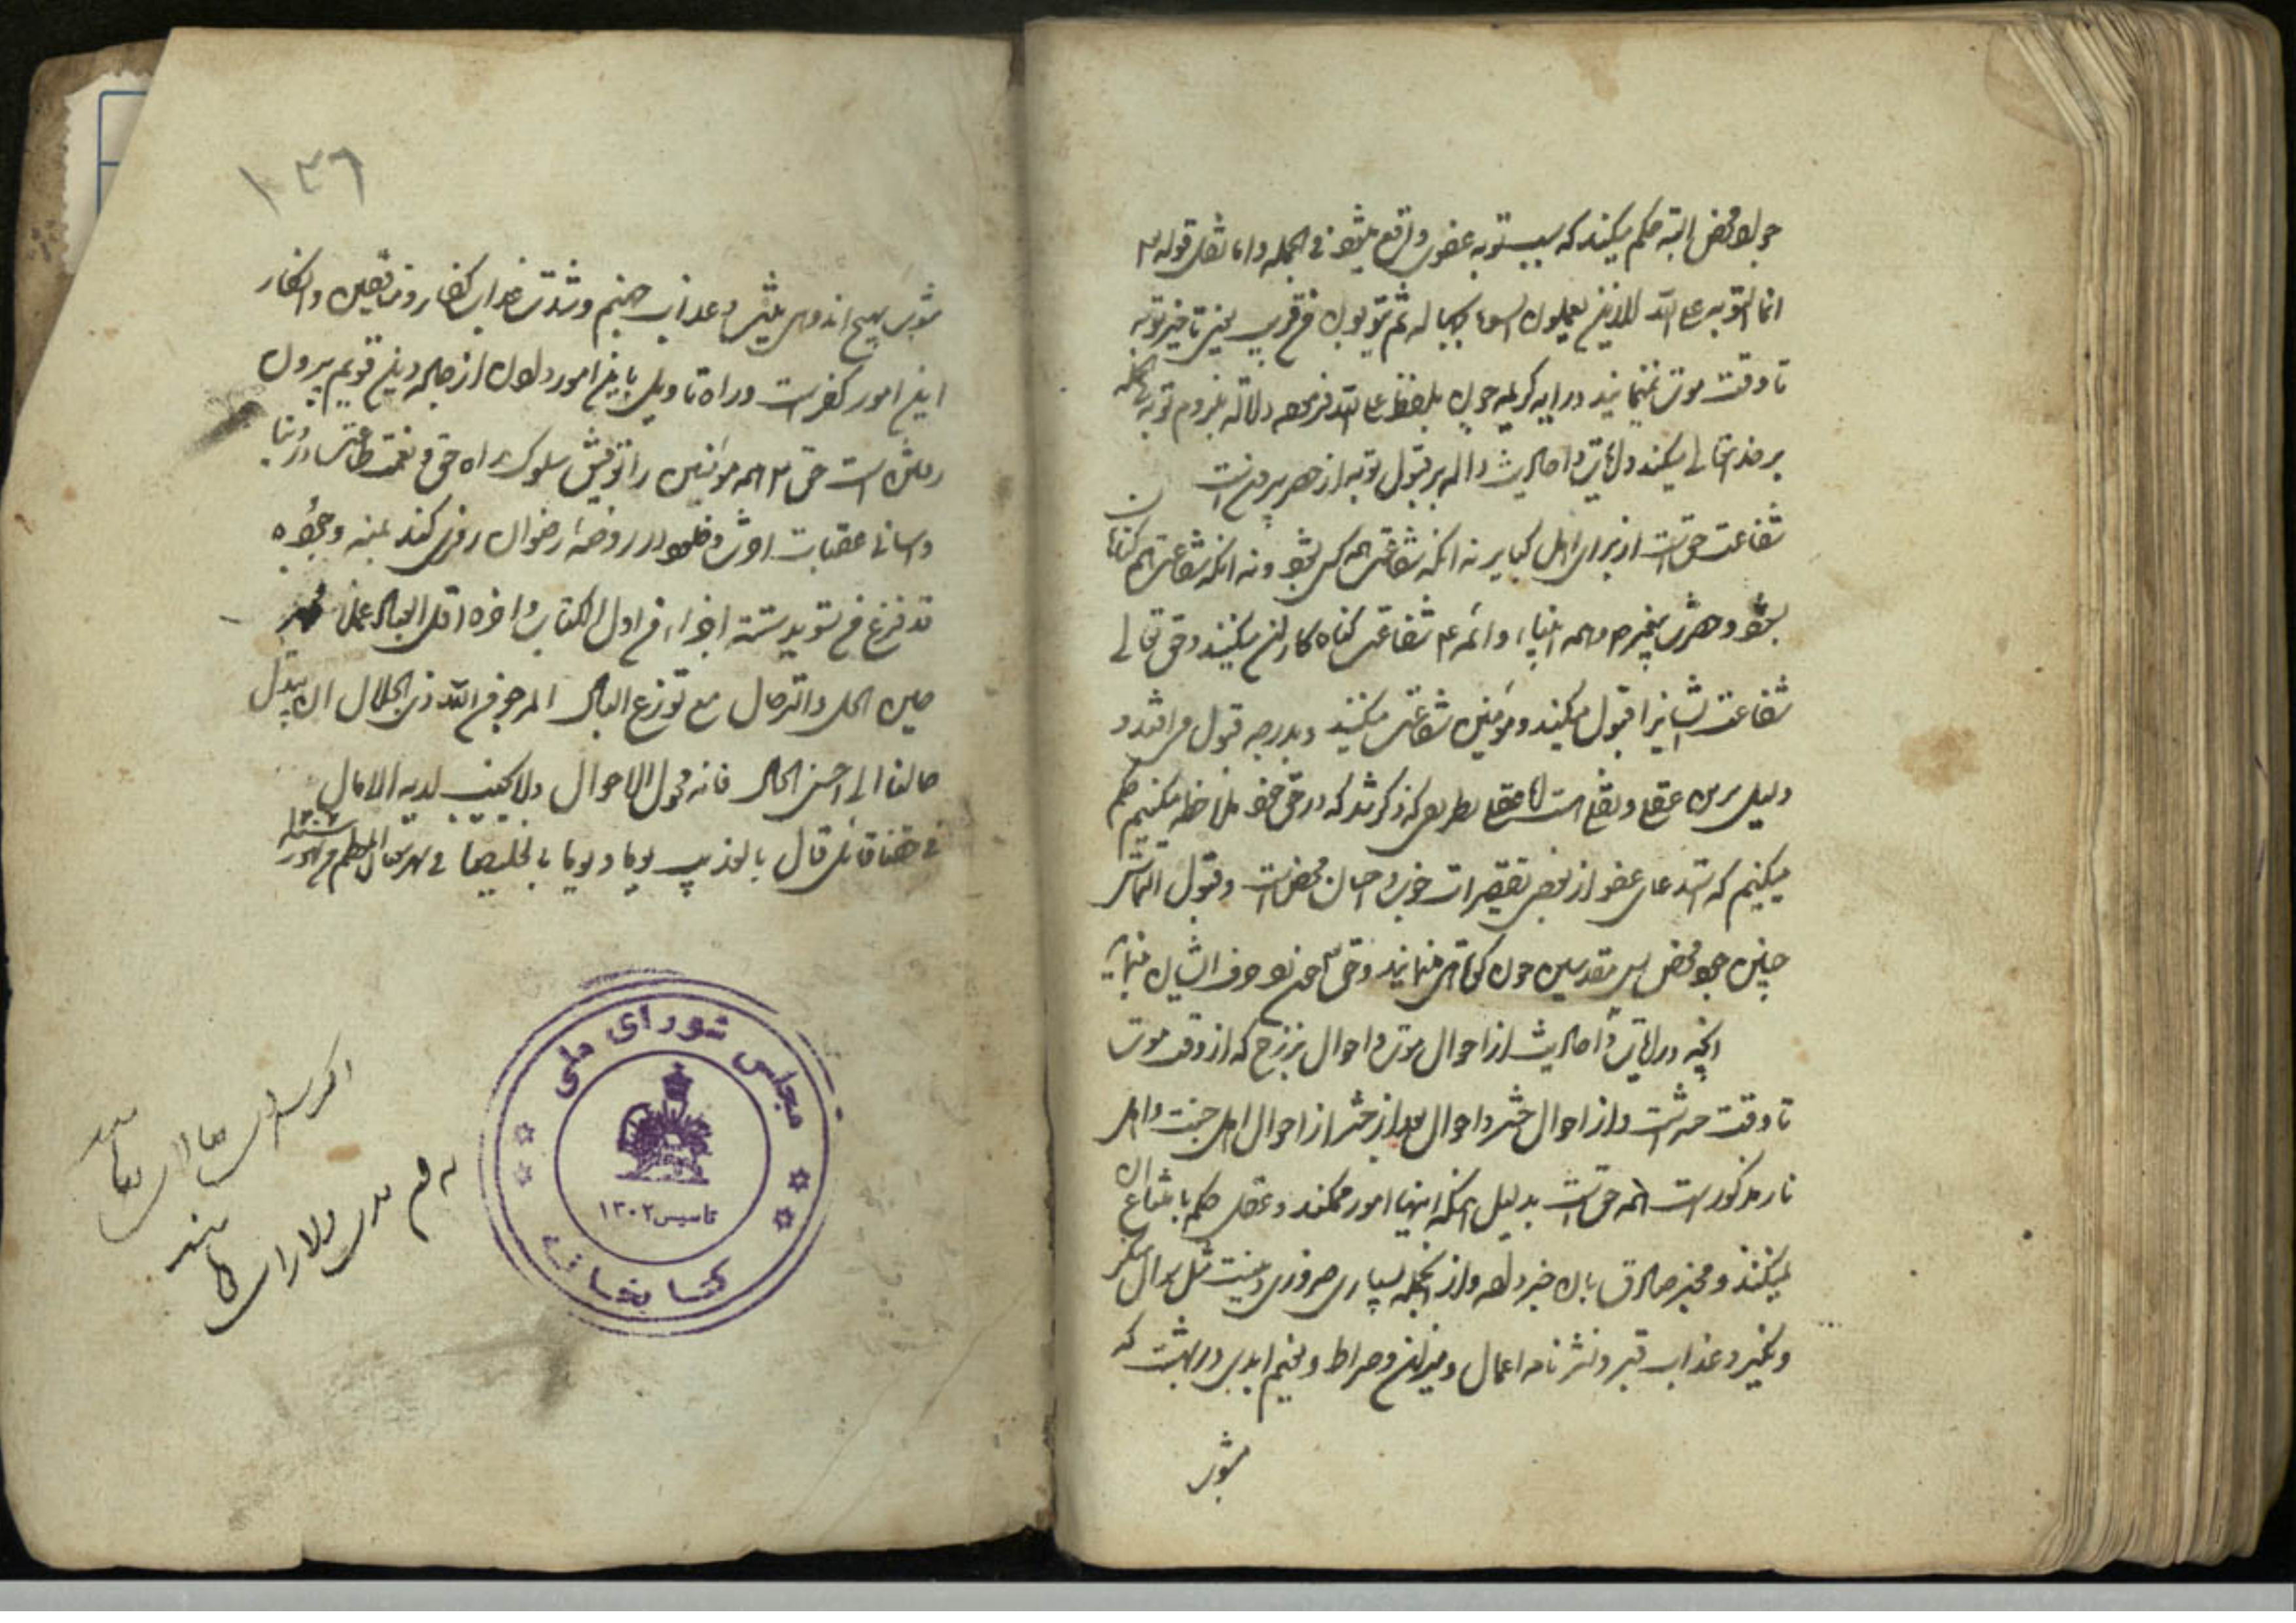 جواد محض البته حکم میکند که بسبب توبه عفوی واقع میشود فی الجمله و اما نقل قوله تع
انما التوبه علی الله للذین یعملون السوء بجهاله ثم یتوبون من قریب یعنی تاخیر توبه
تا وقت موت نمینمایند و در آیه کریمه چون بلفظ علی الله فرموده دلاله بلزوم توبه فی الجمله
بر خدایتعالی میکند و آیات و احادیث داله بر قبول توبه از حصر بیرونست
شفاعت حق است از برای اهل کبایر نه آنکه شفاعت همه کس بشود و نه آنکه شفاعت همه گناهان
بشود و حضرت پیغمبر ص و همه انبیاء و ائمه ع شفاعت گناه کاران میکنند و حق تعالی
شفاعت ایشانرا قبول میکند و مؤمنین شفاعت میکنند و بدرجه قبول می افتد و
دلیل برین عقلی و نقلی است اما عقلی بطریقی که ذکر شد که در حق خود ملاحظه میکنیم حکم
میکنیم که استدعای عفو از بعضی تقصیرات خوب و احسان محض است و قبول التماس
چنین جود محض پس مقدسین چون کوتاهی نمینمایند و حق تع منع
آنچه در آیات و احادیث از احوال موت و احوال برزخ که از وقت موت
تا وقت حشرست و از احوال حشر و احوال بعد از حشر از احوال اهل جنت و اهل
نار مذکورست همه حق است بدلیل آنکه اینها امور ممکنند و عقل حکم بامتناع آن
نمیکند و مخبر صادق بآن خبر داده و از آنجمله بسیاری ضروری دینست مثل سوال منکر
و نکیر و عذاب قبر و نشر نامه اعمال و میزان و صراط و نعیم ابدی در بهشت که
مشوب
١٣٦
مشوب بهیچ اندوهی نیست و عذاب جهنم و شدت عذاب کفار و منافقین و انکار
این امور کفرست و راه تاویل باین امور دادن از جاده دین قویم بیرون
رفتن است حق تع همه مؤمنین را توفیق سلوک راه حق و نعمت طاعت در دنیا
و آسانی عقبات آخرت و خلود در روضه رضوان روزی کند بمنه و جوده
قد فرغ من تسوید ستة اجزاء من اول الکتاب و آخره اقل العباد عملا
حین الحل و الترحال مع توزع البال المرجو من الله ذی الجلال ان یبدل
حالنا الی احسن الحال فانه محول الاحوال ولا یخیب لدیه الآمال
قال بالعذیب یوما و یوما بالخلیصاء فی شهر شعبان المعظم من شهور سنة
مجلس شورای ملی
تاسیس ١٣٠٢
کتابخانه